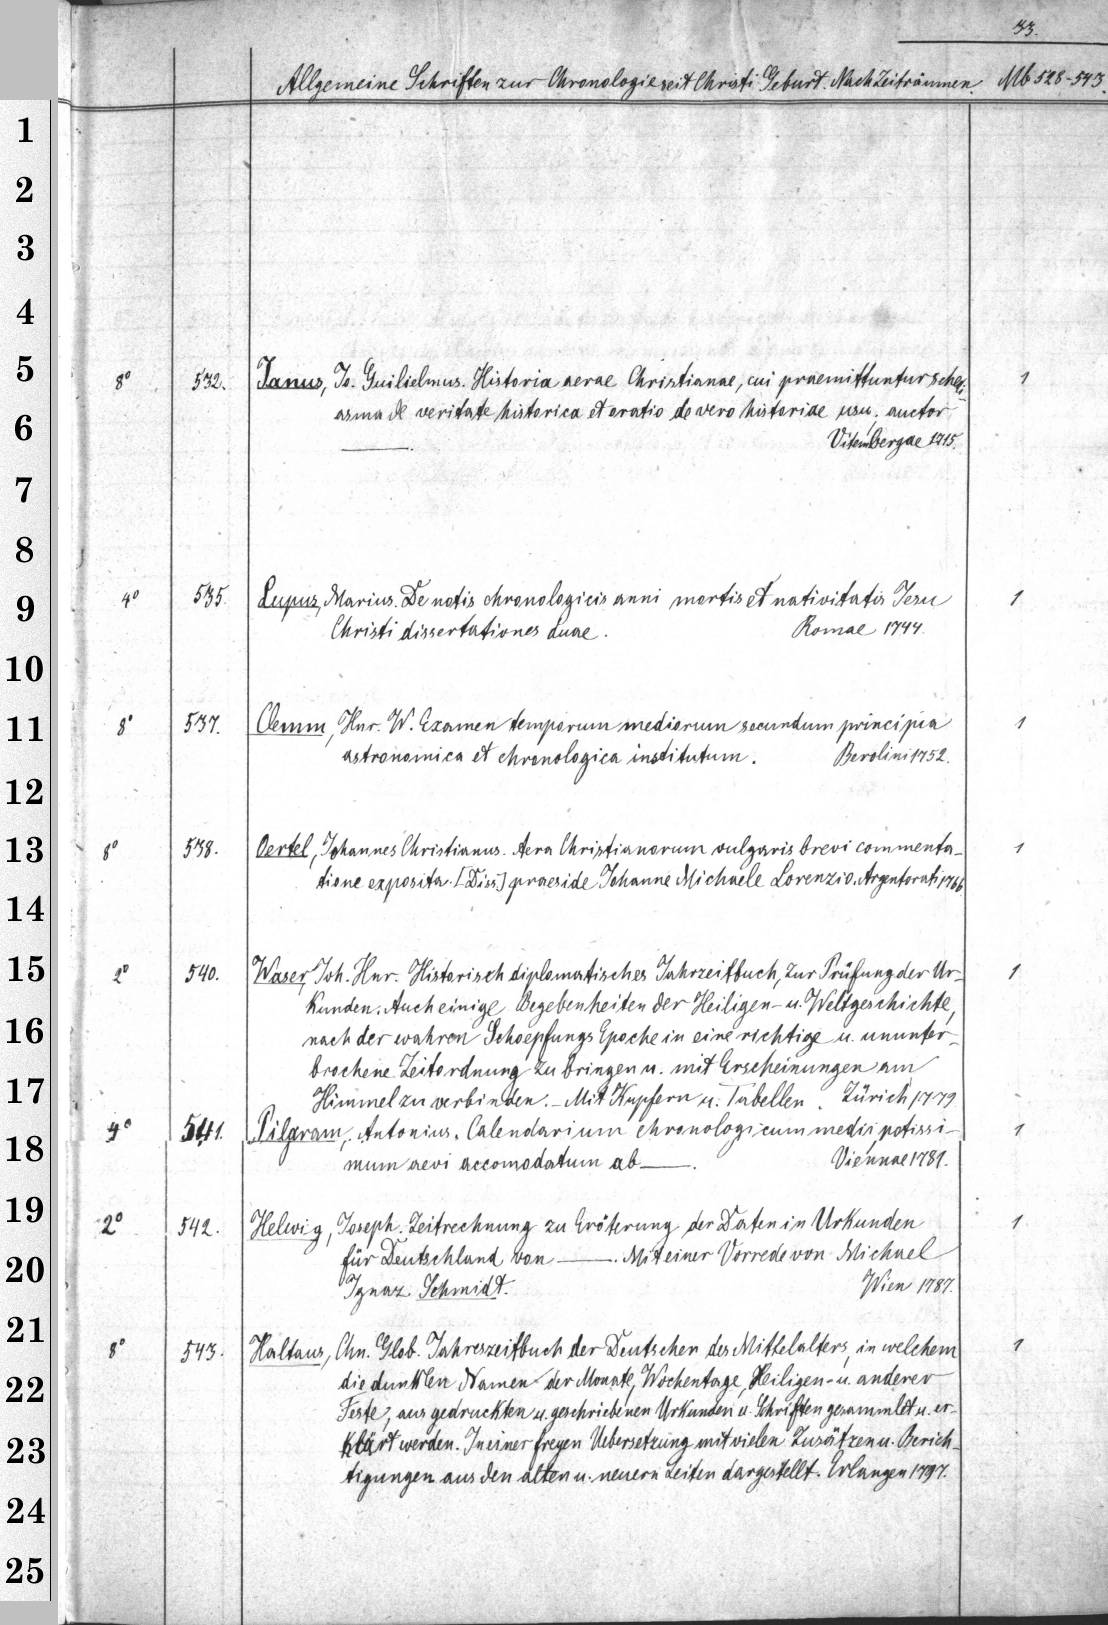 33.
Allgemeine Schriften zur Chronologie seit Christi Geburt. Nach Zeiträumen. Mb 528-543.
1
2
3
4
5
8° 532. Janus, Jo. Guilielmus. Historia aerae Christianae, cui praemittuntur schedi- 1
asma de veritate historica et oratio de vero historiae usu, auctor
6
——. Vitembergae 1715.
7
8
9
4° 535. Lupus, Marius. De notis chronologicis anni mortis et nativitatis Jesu 1
Christi dissertationes duae. Romae 1744.
10
11
8° 537. Oemm, Hnr. W. Examen temporum mediorum secundum principia 1
astronomica et chronologica institutum. Berolini 1752.
12
13
8° 538. Oertel, Johannes Christianus. Aera Christianorum vulgaris brevi commenta- 1
tione exposita. [Diss.] praeside Johanne Michaele Lorenzio. Argentorati 1766.
14
15
2° 540. Waser, Joh. Hnr. Historisch diplomatisches Jahrzeitbuch, zur Prüfung der Ur- 1
kunden. Auch einige Begebenheiten der Heiligen- u. Weltgeschichte,
16
nach der wahren Schoepfungs Epoche in eine richtige u. ununter-
brochene Zeitordnung zu bringen u. mit Erscheinungen am
17
Himmel zu verbinden. - Mit Kupfern u. Tabellen. Zürich 1779
4° 541. Pilgram, Antonius. Calendarium chronologicum medii potissi- 1
18
mum aevi accomodatum ab ——. Viennae 1781.
19
2° 542. Helwig, Joseph. Zeitrechnung zu Eröterung der Daten in Urkunden 1
für Deutschland von ——. Mit einer Vorrede von Michael
20
Ignaz Schmidt. Wien 1787.
21
8° 543. Haltaus, Chn. Glob. Jahreszeitbuch der Deutschen des Mittelalters, in welchem 1
die dunklen Namen der Monate, Wochentage, Heiligen- u. anderer
22
Feste, aus gedruckten u. geschriebenen Urkunden u. Schriften gesammlet u. er-
23
klärt werden. In einer freyen Uebersetzung mit vielen Zusätzen u. Berich-
tigungen aus den alten u. neuern Zeiten dargestellt. Erlangen 1797.
24
25